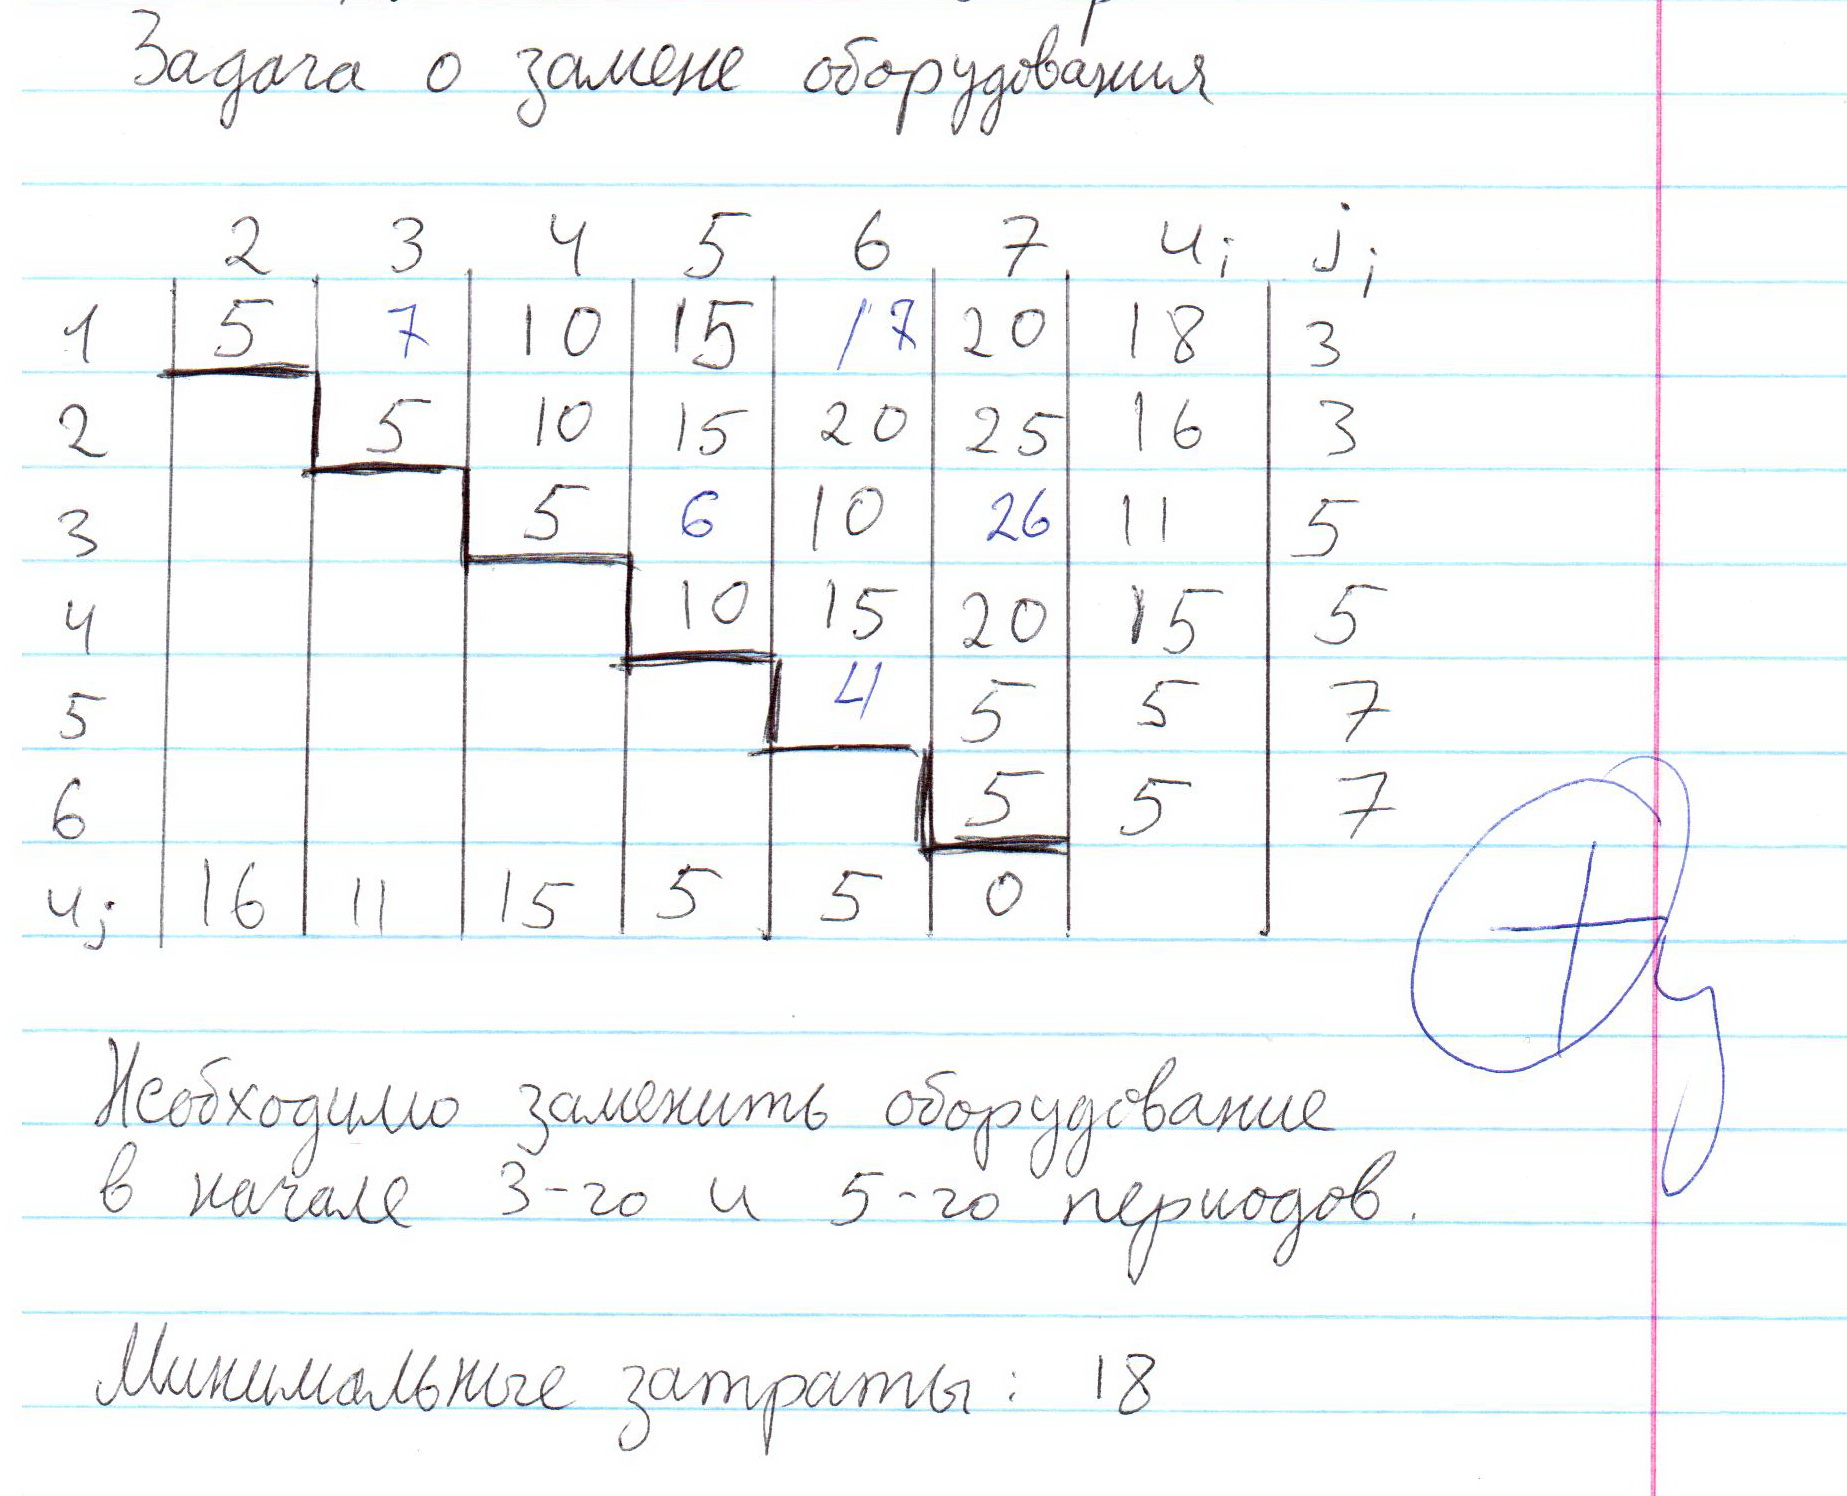 Задача о замене оборудования
2 3 4 5 6 7 u i j i
1 5 7 10 15 17 20 18 3
2 5 10 15 20 25 16 3
3 5 6 10 26 11 5
4 10 15 20 15 5
5 4 5 5 7
6 5 5 7
u j 16 11 15 5 5 0
Необходимо заменить оборудование
в начале 3-го и 5-го периодов.
Минимальные затраты: 18